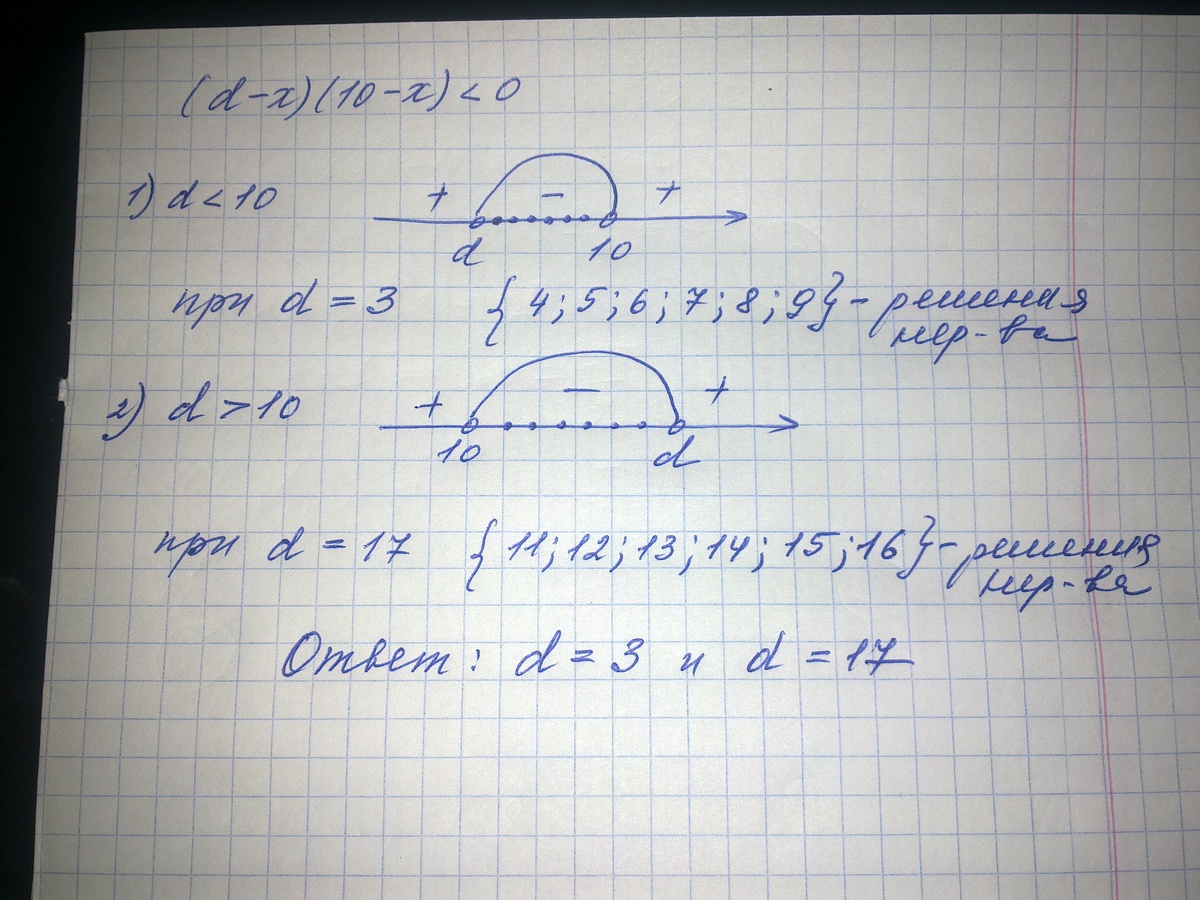 (d-x)(10-x)<0
1) d<10
+ - +
d 10
при d = 3 {4; 5; 6; 7; 8; 9} - решения
нер-ва
2) d >10
+ - +
10 d
при d = 17 {11; 12; 13; 14; 15; 16} - решения
нер-ва
Ответ: d = 3 и d = 17